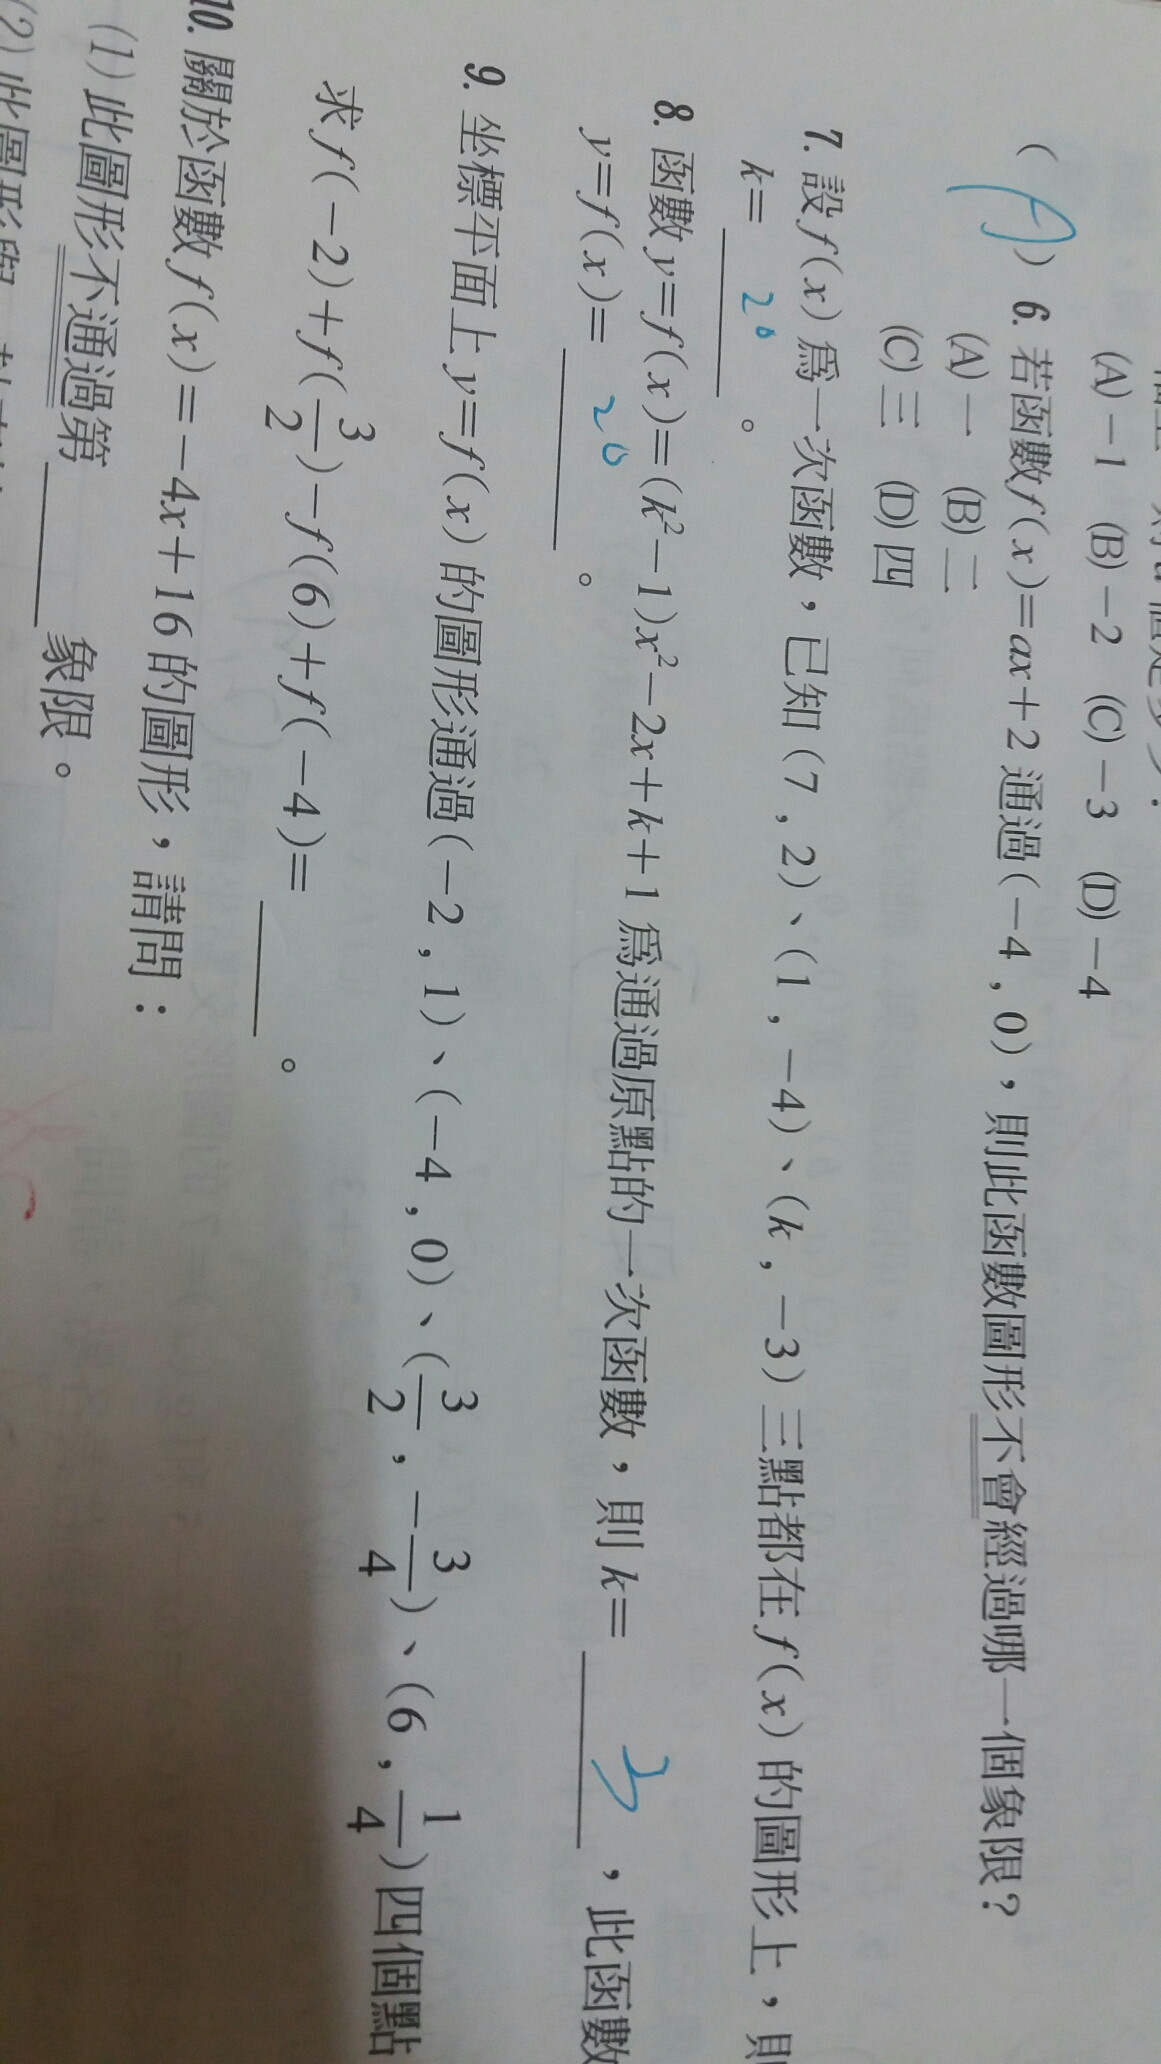 (A)-1 (B)-2 (C)-3 (D)-4
( ) 6. 若函數f(x)=ax+2通過(-4,0),則此函數圖形不會經過哪一個象限?
(A)一 (B)二
(C)三 (D)四
7. 設f(x)為一次函數,已知(7,2)、(1,-4)、(k,-3)三點都在f(x)的圖形上,則
k=____。
8. 函數y=f(x)=(k²-1)x²-2x+k+1為通過原點的一次函數,則k=____,此函數
y=f(x)=____。
9. 坐標平面上y=f(x)的圖形通過(-2,1)、(-4,0)、(3/2,-3/4)、(6,1/4)四個點
求f(-2)+f(3/2)-f(6)+f(-4)=____。
10. 關於函數f(x)=-4x+16的圖形,請問:
(1)此圖形不通過第____象限。
(2)此圖形與